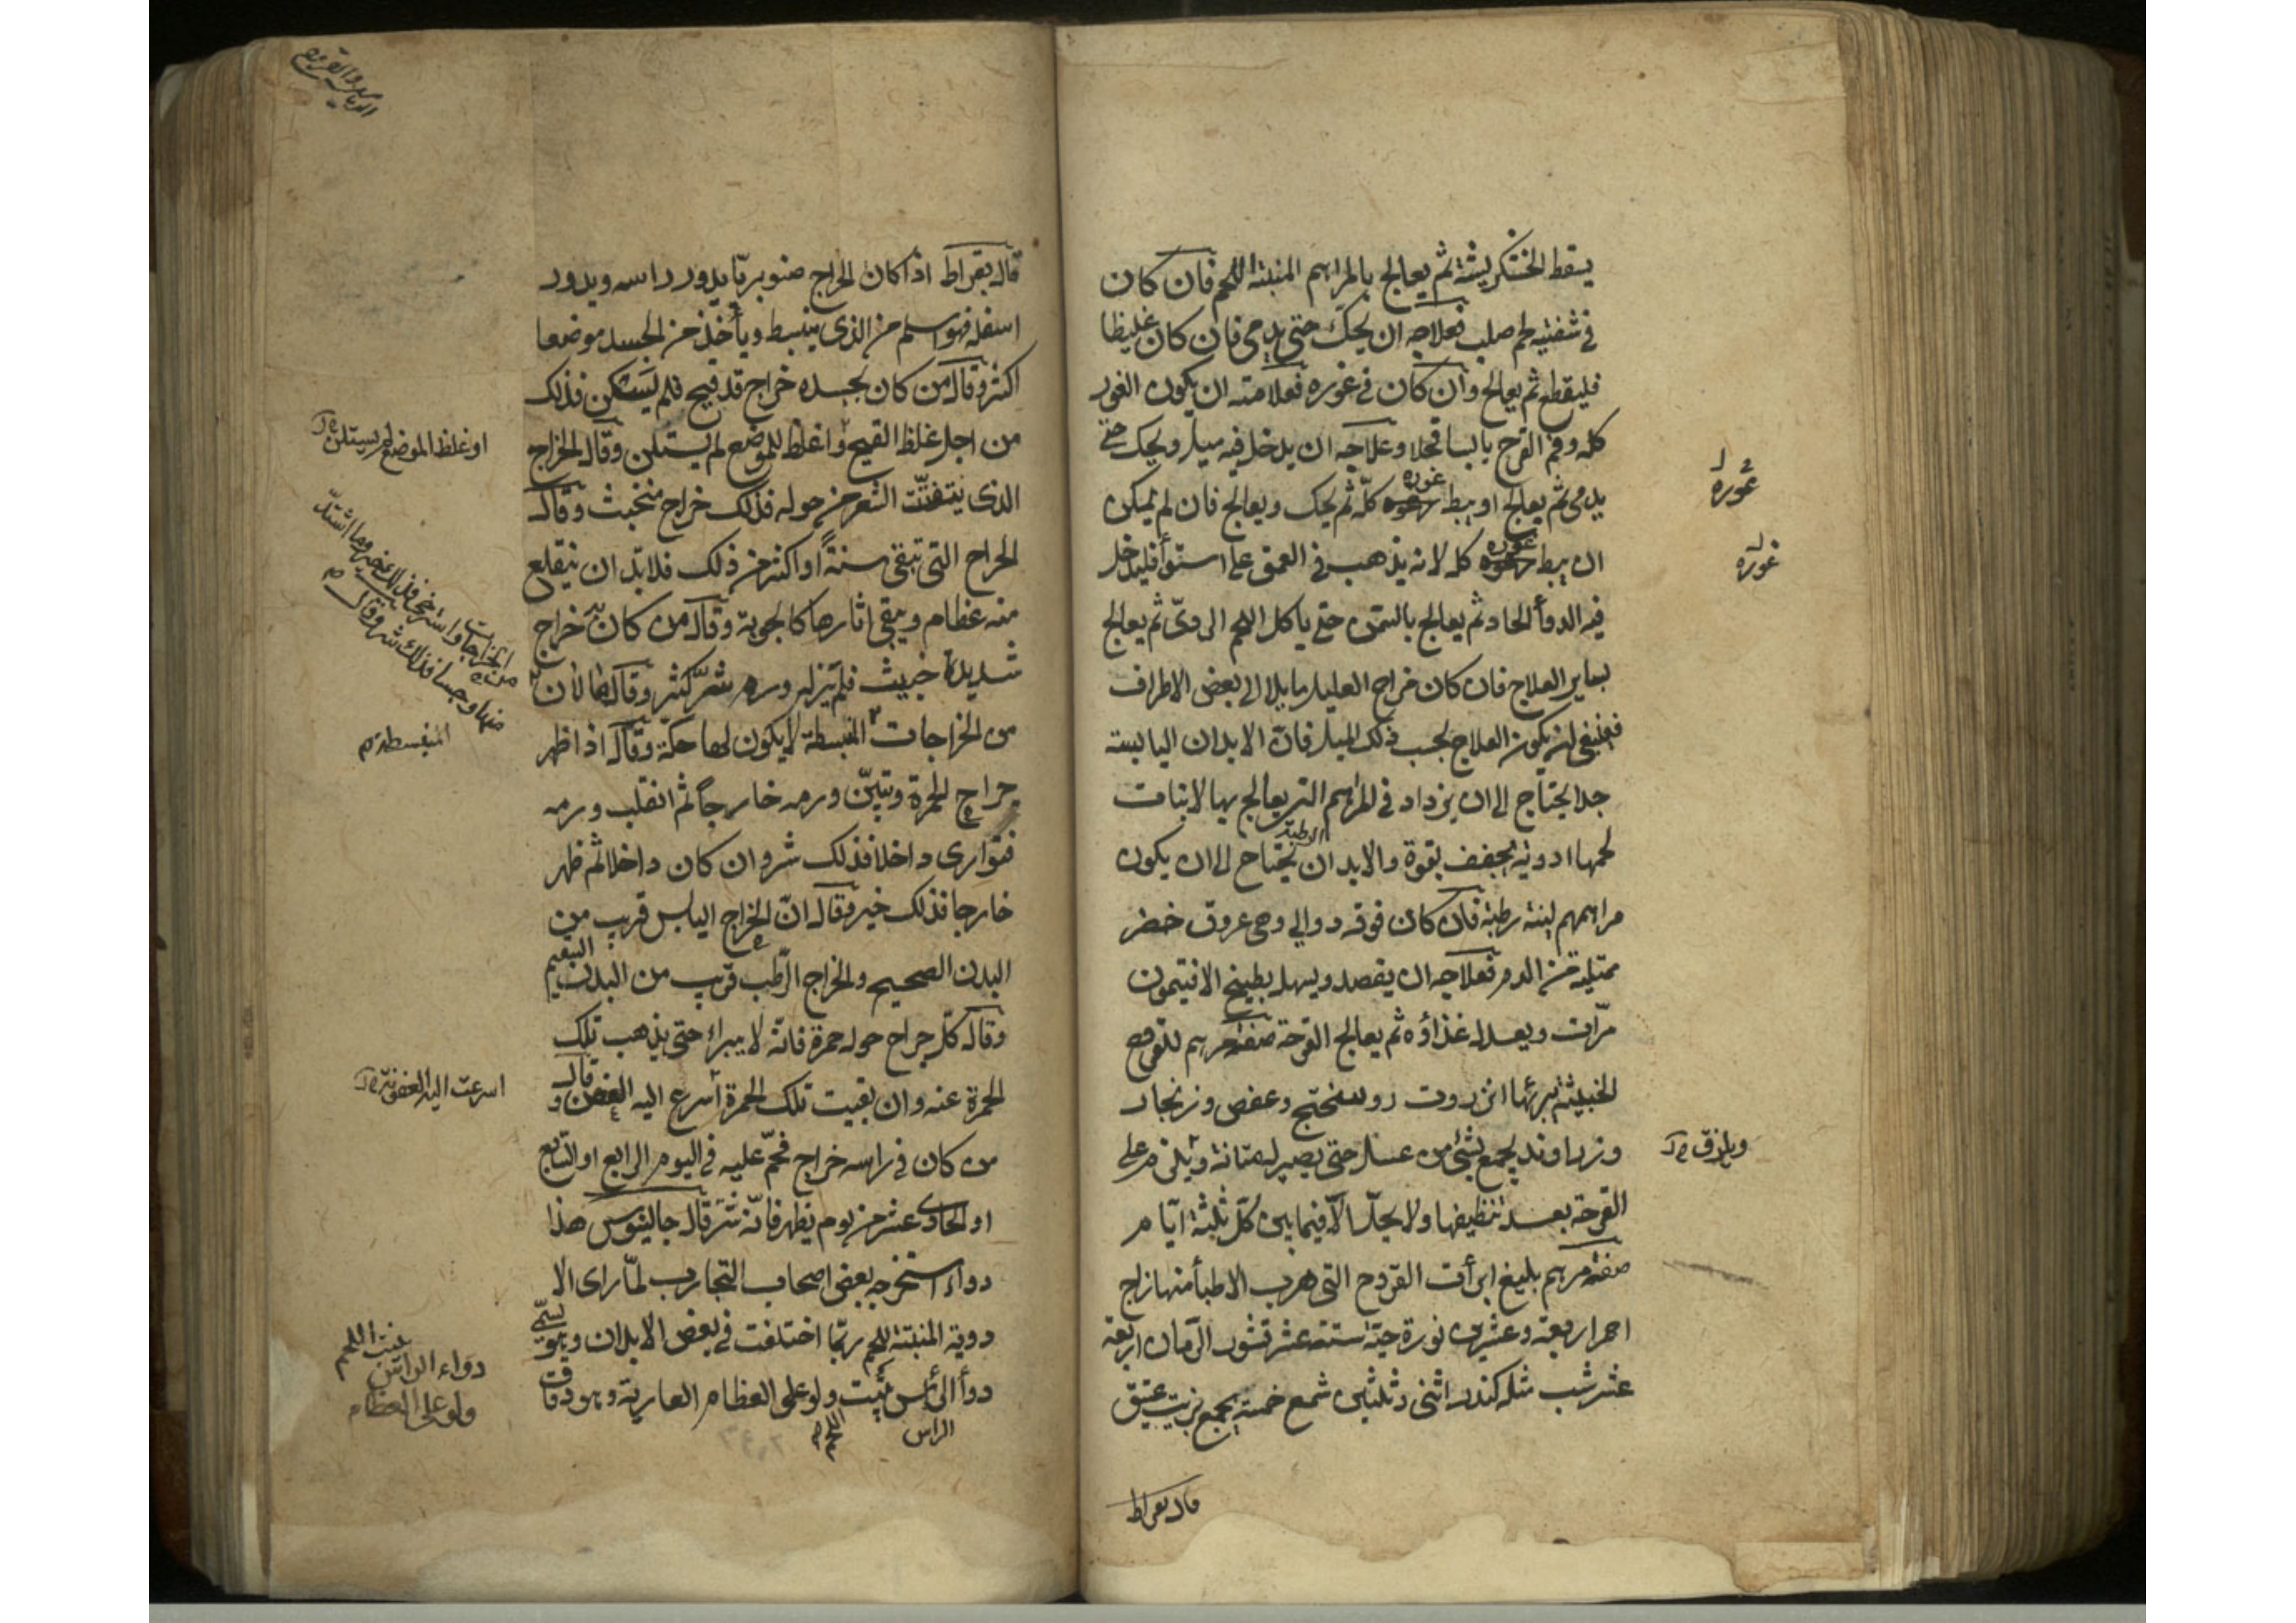 يسقط الخشكريشة ثم يعالج بالمراهم المنبتة اللحم فان كان
في شفتيه لحم صلب فعلاجه ان يحك حتى يدمى فان كان غليظا
فليقطع ثم يعالج وان كان في غوره فعلامته ان يكون الغور
كله وفم القرح يابسا قحلا وعلاجه ان يدخل فيه ميل ويحك حتى
يدمى ثم يعالج او يبط غوره كله ثم يحك ويعالج فان لم يمكن
ان يبط غوره كله لانه يذهب في العمق على استوأ فليدخل
فيه الدوأ الحاد ثم يعالج بالسمن حتى ياكل اللحم الردىّ ثم يعالج
بساير العلاج فان كان خراج العليل مايلا الى بعض الاطراف
فينبغي ان يكون العلاج بحسب ذلك الميل فانّ الابدان اليابسة
جدا يحتاج الى ان يزداد في المراهم التي يعالج بها لانبات
لحمها ادوية يجفف بقوة والابدان الرطبة يحتاج الى ان يكون
مراهمهم لينة رطبة فان كان فوقه دوالي وهي عروق خضر
ممتلية من الدم فعلاجه ان يفصد ويسهل بطبيخ الافتيمون
مرّات ويعدل غذاؤه ثم يعالج القرحة صفة مرهم للقروح
الخبيثة يبرئها انزروت روسختج وعفص وزنجار
وزراوند يجمع بشئ من عسل حتى يصير ويلزم على
القرحة بعد تنظيفها ولا يحلّ الّا فيما بين كلّ ثلثة ايّام
صفة مرهم بليغ ابرأت القروح التي هرب الاطبأ منها زاج
احمر اربعة وعشرين نورة حيّة ستة عشر قشور الرّمان اربعة
عشر شب مثله كندر اثنى وثلثين شمع خمسة يجمع بزيت عتيق
قال بقراط
غوره
غوره
ويلزق
قال بقراط اذا كان الخراج صنوبريّا يدور راسه ويدور
اسفله فهو اسلم من الذي ينبسط ويأخذ من الجسد موضعا
اكثر وقال من كان بجسده خراج قد قيح فلم يستكن فذلك
من اجل غلظ القيح او غلظ الموضع لم يستلن وقال الخراج
الذي يتفتّت الشعر من حوله فذلك خراج متخبث وقال
الخراج التي تبقى سنةً او اكثر من ذلك فلا بدّ ان ينقلع
منه عظام ويبقى اثارها كالجوبة وقال من كان به خراج
شديدة خبيث فلم يزل ورم شرّ كثير وقال ما لان
من الخراجات المنبسطة لا يكون لها حكّة وقال اذا ظهر
خراج الحمرة وتبيّن ورمه خارجاً ثم انقلب ورمه
فتوارى داخلا فذلك شر وان كان داخلا ثم ظهر
خارجا فذلك خير وقال انّ الخراج اليابس قريب من
البدن الصحيح والخراج الرّطب قريب من البدن السقيم
وقال كلّ جراح حوله حمرة فانّه لا يبراء حتى يذهب تلك
الحمرة عنه وان بقيت تلك الحمرة أسرع اليه العفن وقال
من كان في راسه خراج فحمّ عليه في اليوم الرابع او السّابع
او الحادى عشر من يوم يظهر فانّه شرّ قال جالينوس هذا
دواء استخرجه بعض اصحاب التجارب لمّا راى الا
دوية المنبتة للحم ربّما اختلفت في بعض الابدان وهو يسمّى
دوأ الرأس ينبت ولو على العظام العارية وهو دقاق
الراس
اللحم
او غلظ الموضع لم يستلن
من الخراجات واسترخى فذلك خير وما اشتدّ
منها وجسا فذلك شر وقال
المنبسطة
اسرعت اليه العفونة
دواء الراس ينبت اللحم
ولو على العظام